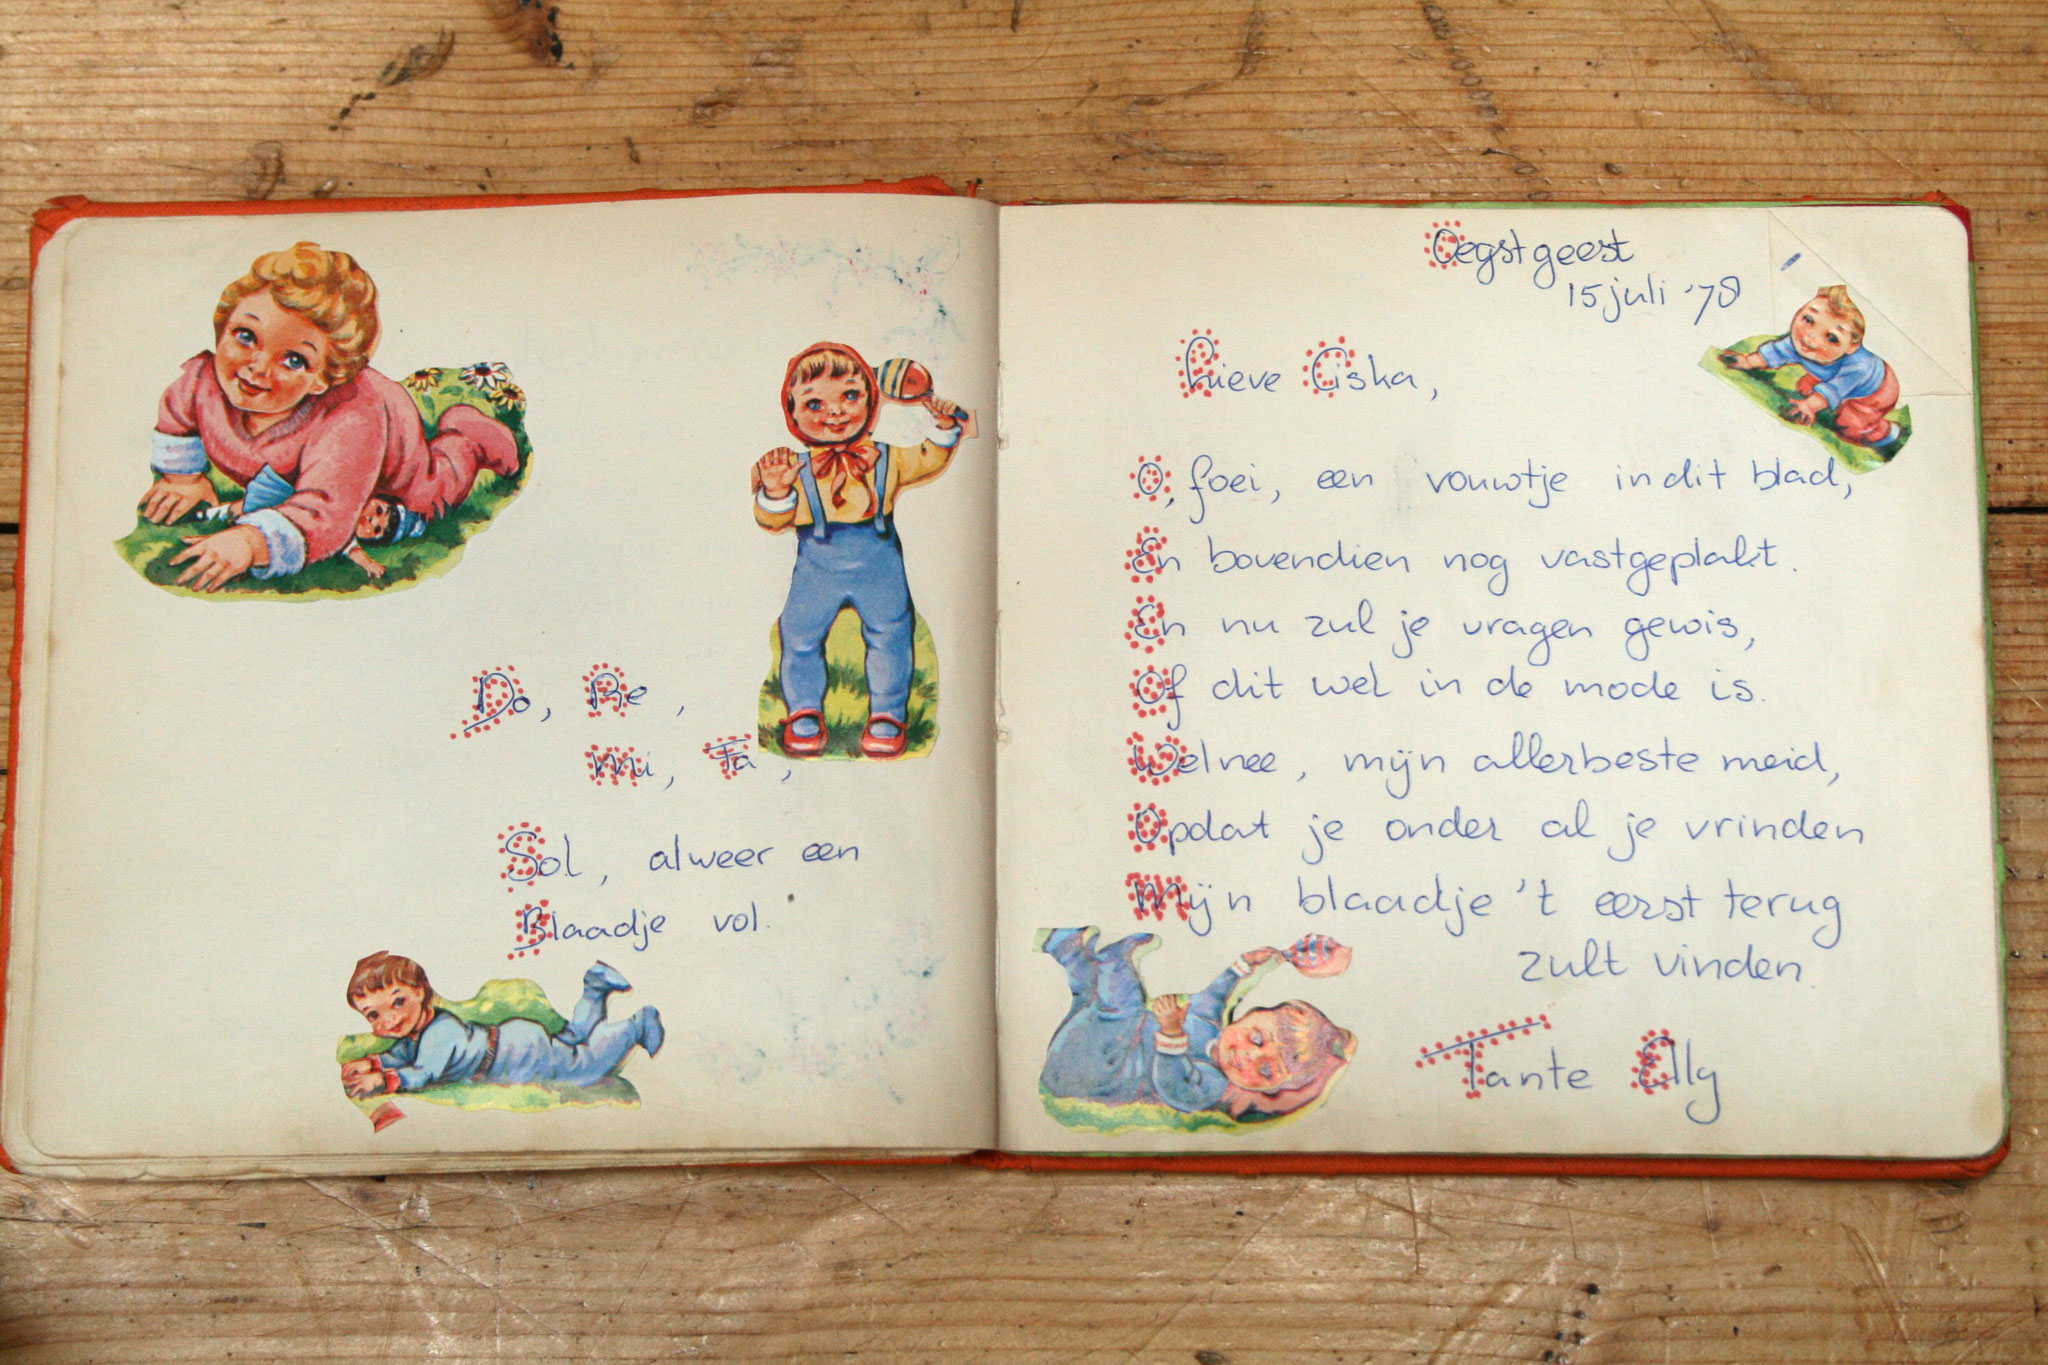 Do, Re,
Mi, Fa,
Sol, alweer een
Blaadje vol.
Oegstgeest
15 juli '78
Lieve Ciska,
O, foei, een vouwtje in dit blad,
En bovendien nog vastgeplakt.
En nu zul je vragen gewis,
Of dit wel in de mode is.
Welnee, mijn allerbeste meid,
Opdat je onder al je vrinden
Mijn blaadje 't eerst terug
zult vinden.
Tante Elly